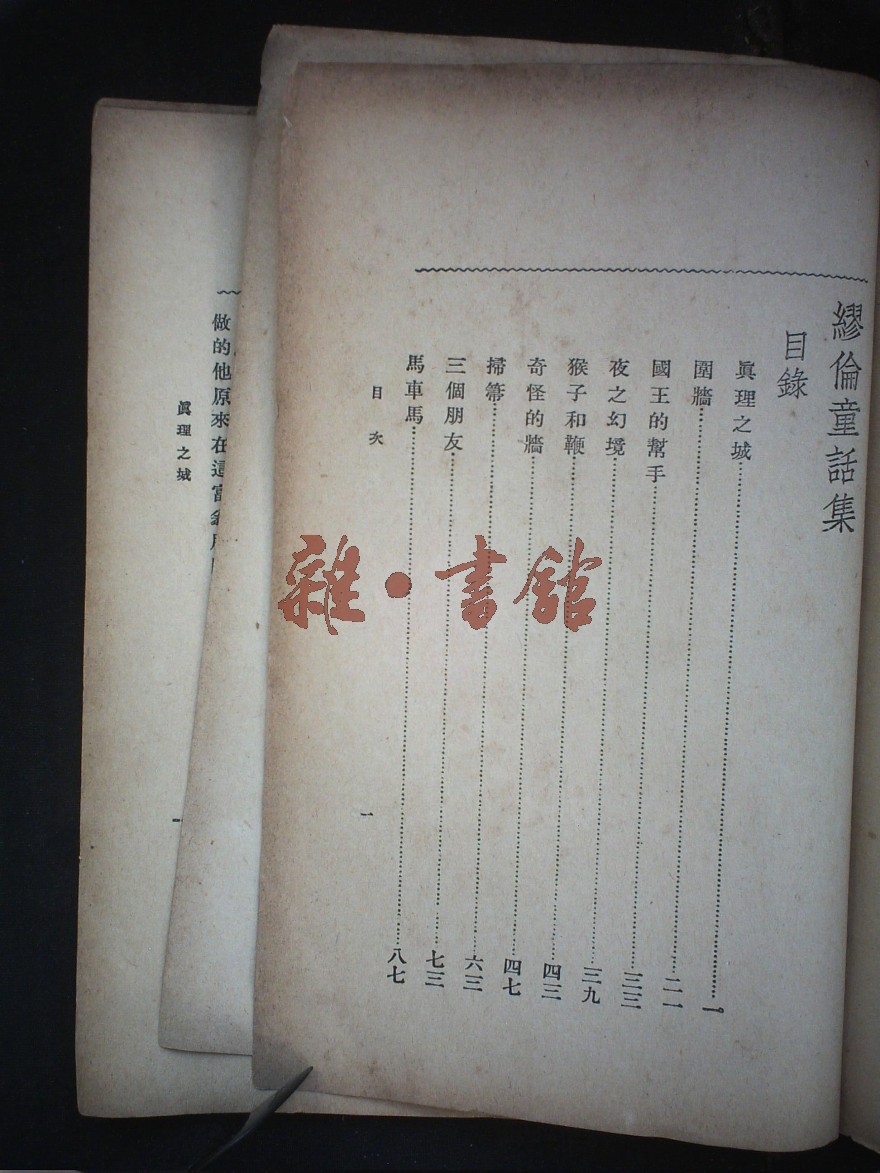 繆倫童話集
目錄
眞理之城 一
圍牆 二一
國王的幫手 三三
夜之幻境 三九
猴子和鞭 四三
奇怪的牆 四七
掃箒 六三
三個朋友 七三
馬車馬 八七
目次
一
雜・書舘
做的他原來在這富
眞理之城
一